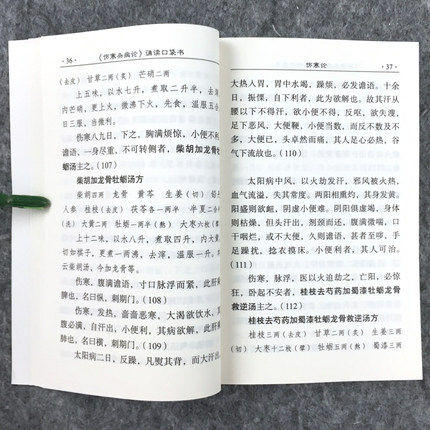 · 36 ·
《伤寒杂病论》诵读口袋书
(去皮) 甘草二两(炙) 芒硝二两
上五味,以水七升,煮取二升半,去
内芒硝,更上火,微沸下火,先食,温服五合
日三服,当微利。
伤寒八九日,下之,胸满烦惊,小便不利
谵语,一身尽重,不可转侧者,柴胡加龙骨牡
蛎汤主之。(107)
柴胡加龙骨牡蛎汤方
柴胡四两 龙骨 黄芩 生姜(切) 铅
人参 桂枝(去皮) 茯苓各一两半 半夏二合
(洗) 大黄二两 牡蛎一两半 大枣六枚
上十二味,以水八升,煮取四升,内大黄
切如棋子,更煮一两沸,去滓,温服一升。
云柴胡汤,今加龙骨等。
伤寒,腹满谵语,寸口脉浮而紧,此肝乘
脾也,名曰纵,刺期门。(108)
伤寒,发热,啬啬恶寒,大渴欲饮水,其
腹必满,自汗出,小便利,其病欲解,此肝
肺也,名曰横,刺期门。(109)
太阳病二日,反躁,凡熨其背,而大汗出
伤寒论
· 37 ·
大热入胃,胃中水竭,躁烦,必发谵语。十
余日,振慄,自下利者,此为欲解也。故其汗从
腰以下不得汗,欲小便不得,反呕,欲失溲,
足下恶风,大便鞕,小便当数,而反不数及不
多,大便已,头卓然而痛,其人足心必热,谷
气下流故也。(110)
太阳病中风,以火劫发汗,邪风被火热,
血气流溢,失其常度。两阳相熏灼,其身发黄。
阳盛则欲衄,阴虚小便难。阴阳俱虚竭,身体
则枯燥,但头汗出,剂颈而还,腹满微喘,口
干咽烂,或不大便,久则谵语,甚者至哕,手
足躁扰,捻衣摸床,小便利者,其人可治。
(111)
伤寒,脉浮,医以火迫劫之,亡阳,必惊
狂,卧起不安者,桂枝去芍药加蜀漆牡蛎龙骨
救逆汤主之。(112)
桂枝去芍药加蜀漆牡蛎龙骨救逆汤方
桂枝三两(去皮) 甘草二两(炙) 生姜三两
(切) 大枣十二枚(擘) 牡蛎五两(熬) 蜀漆三两